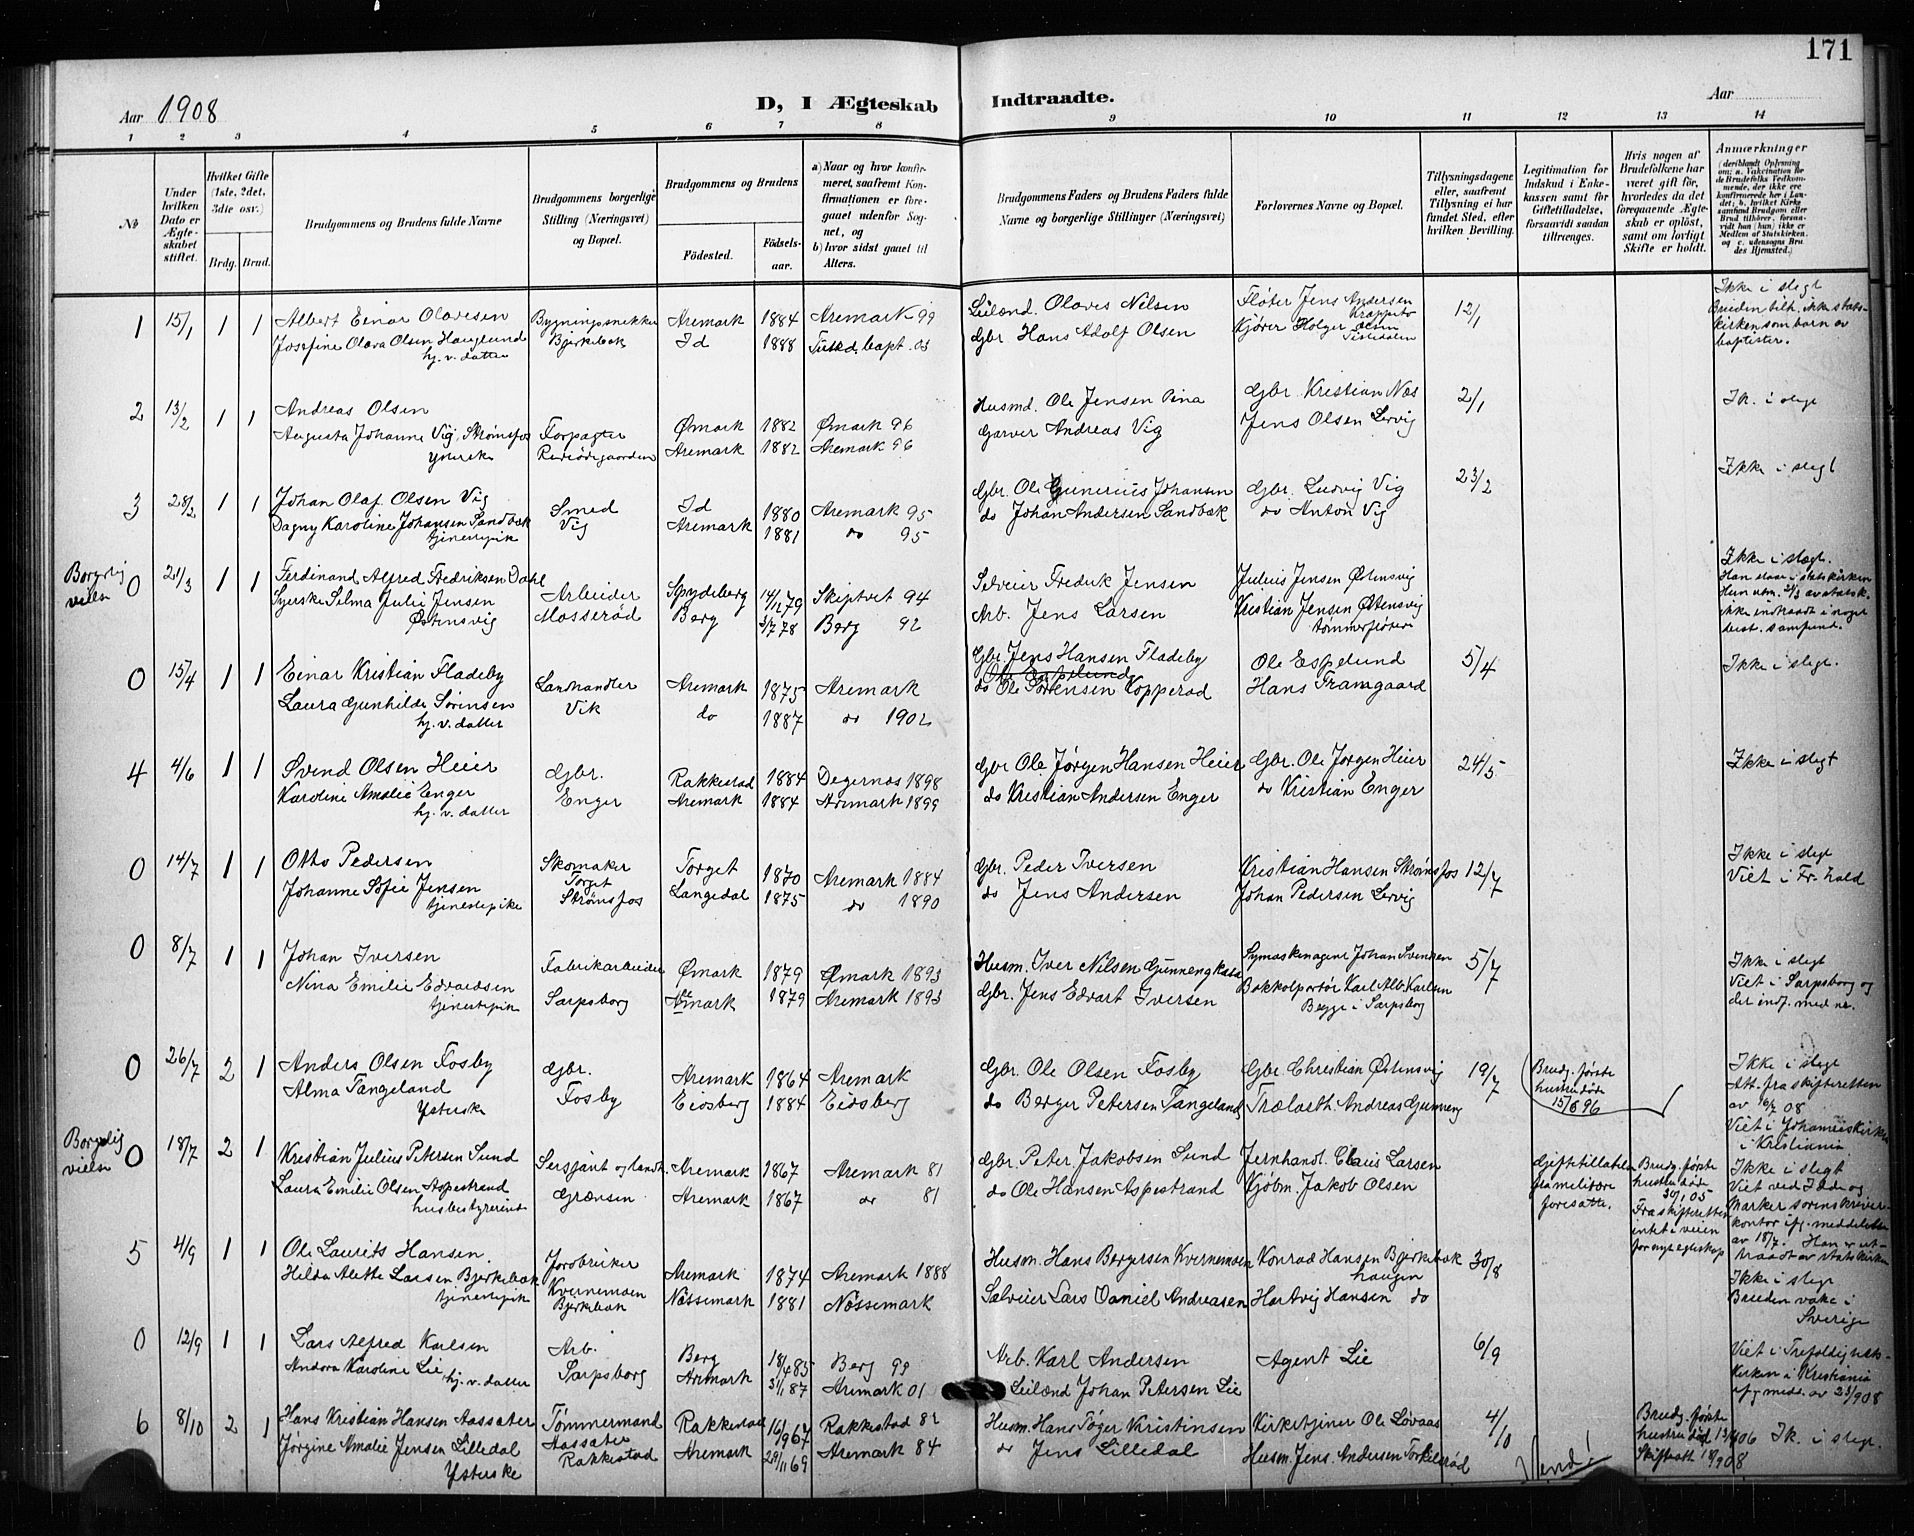 171
Aar 1908
D, I Ægteskab Indtraadte.
Aar
1 2 3 4 5 6 7 8 9 10 11 12 13 14
No
Under hvilken Dato er Ægteskabet stiftet.
Hvilket Gifte (1ste, 2det, 3die osv.)
Brdg. Brud.
Brudgommens og Brudens fulde Navne
Brudgommens borgerlige Stilling (Næringsvei) og Bopæl.
Brudgommens og Brudens
Fødested.
Fødselsaar.
a) Naar og hvor konfirmeret, saafremt Konfirmationen er foregaaet udenfor Sognet, og
b) hvor sidst gaaet til Alters.
Brudgommens Faders og Brudens Faders fulde Navne og borgerlige Stillinger (Næringsvei)
Forlovernes Navne og Bopæl.
Tillysningsdagene eller, saafremt Tillysning ei har fundet Sted, efter hvilken Bevilling.
Legitimation for Indskud i Enkekassen samt for Giftetilladelse, forsaavidt saadan tiltrænges.
Hvis nogen af Brudefolkene har været gift før, hvorledes da det foregaaende Ægteskab er opløst, samt om lovligt Skifte er holdt.
Anmærkninger
(deriblandt Oplysning om: a. Vaccination for de Brudefolks Vedkommende, der ikke ere konfirmerede her i Landet; b. hvilket Kirkesamfund Brudgom eller Brud tilhører, forsaavidt han (hun) ikke er Medlem af Statskirken, og c. udensogns Brudes Hjemsted.)
1 15/1 1 1 Albert Einar Olavesen Bygningssnikker Aremark 1884 Aremark 99 Leilænd. Olaves Nilsen Fløter Jens Andersen 12/1 Ikke i slegt
Josefine Olava Olsen Hauglund Bjerkebæk Id 1888 bapt. Gbr. Hans Adolf Olsen Kjører Holger Olsen Tistedalen Bruden tilh. ikke statskirken som barn av baptister.
hj. v. datter
2 13/2 1 1 Andreas Olsen Forpagter Ømark 1882 Ømark 96 Husmd. Ole Jensen Gbr. Kristian Næs 2/1 Ik. i slegt
Augusta Johanne Vig, Strømsfos Aremark 1882 Aremark 96 Garver Andreas Vig Jens Olsen Lervig
3 28/2 1 1 Johan Olaf Olsen Vig Smed Id 1880 Aremark 95 Gbr. Ole Gunerius Johansen Gbr. Ludvig Vig 23/2 Ikke i slegt
Dagny Karoline Johansen Sandbæk Vig Aremark 1881 do 95 do Johan Andersen Sandbæk do Anton Vig
tjenestepik
Borgelig vielse 0 21/3 1 1 Ferdinand Alfred Fredriksen Dahl Arbeider Spydeberg 14/12 79 Skiptvet 94 Selveier Fredrik Jensen Julius Jensen Østensvig Ikke i slegt.
Syerske Selma Julie Jensen Mosserød Berg 3/7 78 Berg 92 Arb. Jens Larsen Kristian Jensen Østensvig Han staar i statskirken
Østensvig tømmerfløtere
0 15/4 1 1 Einar Kristian Fladeby Landhandler Aremark 1875 Aremark Gbr. Jens Hansen Fladeby Ole Espelund 5/4 Ikke i slegt.
Laura Gunhilde Sørensen Vik do 1887 do 1902 do Ole Sørensen Kopperød Hans Framgaard
hj. v. datter
4 4/6 1 1 Svend Olsen Heier Gbr. Rakkestad 1884 Degernes 1898 Gbr. Ole Jørgen Hansen Heier Gbr. Ole Jørgen Heier 24/5 Ikke i slegt
Karoline Amalie Enger Enger Aremark 1884 Aremark 1899 do Kristian Andersen Enger do Kristian Enger
hj. v. datter
0 14/7 1 1 Otto Pedersen Skomaker Torget 1870 Aremark 1884 Gbr. Peder Iversen Kristian Hansen Strømsfos 12/7 Ikke i slegt
Johanne Sofie Jensen Torget Strømsfos Langedal 1875 do 1890 do Jens Andersen Johan Pedersen Lervig Viet i Fr.hald
tjenestepike
0 8/7 1 1 Johan Iversen Fabrikarbeider Ømark 1879 Ømark 1893 Husm. Iver Nilsen Symaskinagent Johan Svensken 5/7 Ikke i slegt
Nina Emilie Edvardsen Sarpsborg Aremark 1879 Aremark 1893 Gbr. Jens Edvart Iversen Bokkolportør Karl Alb. Karlsen Viet i Sarpsborg og
tjenestepik Begge i Sarpsborg der indf. med no.
0 26/7 2 1 Anders Olsen Fosby Gbr. Aremark 1864 Aremark Gbr. Ole Olsen Fosby Gbr. Christian Østensvig 19/7 Brudg. første hustru døde 15/6 96 Ikke i slegt
Alma Tangeland Fosby Eidsberg 1884 Eidsberg do Berger Petersen Tangeland Trælasth. Andreas Gunneng Att. fra skifteretten av 16/7 08
Viet i Johanneskirken i Kristiania
Borgelig vielse 0 18/7 2 1 Kristian Julius Petersen Sund Sersjant og landh. Aremark 1867 Aremark 81 Gbr. Peter Jakobsen Sund Jernhandl. Claus Larsen Giftetilladelse fra militære foresatte. Brudg. første hustru døde 30/1 05 Ikke i slegt
Laura Emilie Olsen Aspestrand Grænsen Aremark 1867 do 81 do Ole Hansen Aspestrand Kjøbm. Jakob Olsen Fra skifteretten intet i veien for nyt egteskap Viet ved Idde og Marker sorenskriverkontor ifg. meddelelse av 18/7. Han er uttraadt av statskirken
husbestyrerinde
5 4/9 1 1 Ole Laurits Hansen Jordbruker Aremark 1874 Aremark 1888 Husm. Hans Bergersen Kvernemoen Konrad Hansen Bjerkebæk 30/8 Ikke i slegt
Hilda Alette Larsen Bjerkebæk Kvernemoen Bjerkebæk Nøssemark 1881 Nøssemark Selveier Lars Daniel Andreasen Hartvig Hansen do Bruden vakc i Sverige
tjenestepik
0 12/9 1 1 Lars Alfred Karlsen Arb. Berg 18/4 85 Berg 99 Arb. Karl Andersen Agent Lie 6/9 Viet i Trefoldighedskirken i Kristiania
Andora Karoline Lie hj. v. datter Sarpsborg Aremark 3/11 87 Aremark 01 Leilænd Johan Petersen Lie ifg. medd. av 23/9 08
6 8/10 2 1 Hans Kristian Hansen Aassæter Tømmermand Rakkestad 16/9 67 Rakkestad 82 Husm. Hans Tøger Kristinsen Kirketjener Ole Løvaas 4/10 Brudg. første hustru død Ik. i slegt.
Jørgine Amalie Jensen Lilledal Aassæter Rakkestad Aremark 29/11 69 Aremark 84 do Jens Lilledal Husm. Jens Andersen Torkilsrød Skifteatt.
Vend!